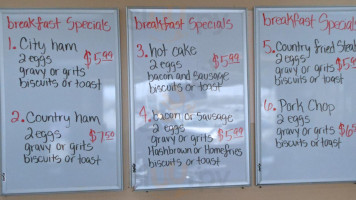 breakfast Specials
1. City ham
2 eggs $5.99
gravy or grits
biscuits or toast
2. Country ham
2 eggs $7.50
gravy or grits
biscuits or toast
breakfast Specials
3. hot cake
2 eggs $5.99
bacon and sausage
biscuits or toast
4. bacon or Sausage
2 eggs
gravy or grits $5.99
Hashbrown or Homefries
biscuits or toast
breakfast Specials
5. Country fried Steak
2 eggs
gravy or grits
biscuits or toast
6. Pork Chop
2 eggs
gravy or grits
biscuits or toast